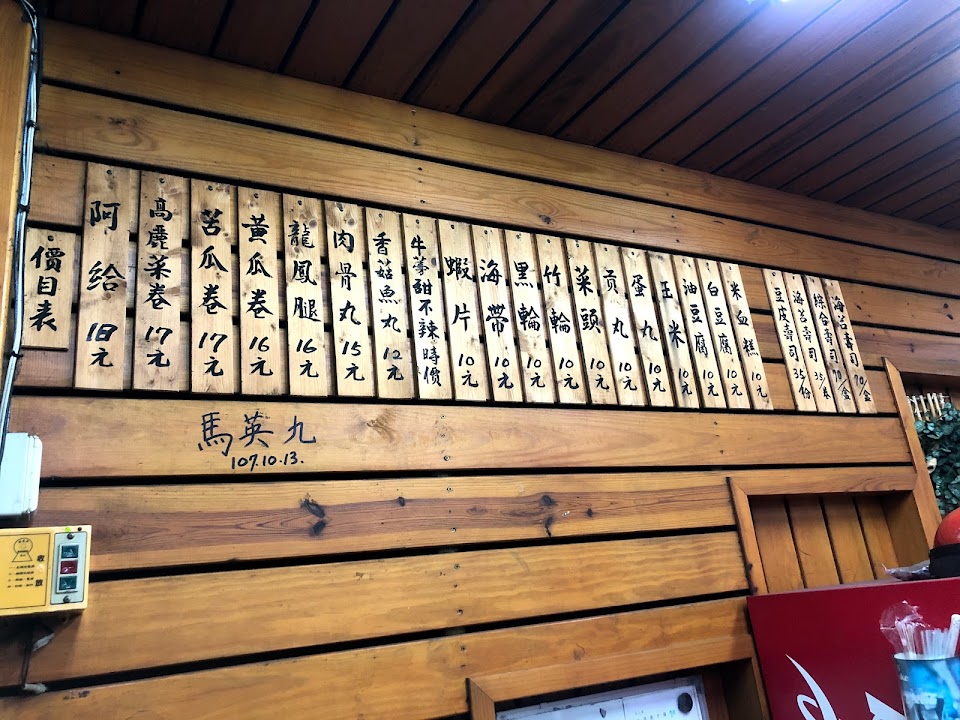 價目表
阿給 18元
高麗菜卷 17元
苦瓜卷 17元
黃瓜卷 16元
龍鳳腿 16元
肉骨丸 15元
香菇魚丸 12元
牛蒡甜不辣時價
蝦片 10元
海帶 10元
黑輪 10元
竹輪 10元
菜頭 10元
貢丸 10元
蛋丸 10元
玉米 10元
油豆腐 10元
白豆腐 10元
米血糕 10元
豆皮壽司 35/份
海苔壽司 35/本
綜合壽司 70/盒
馬英九
107.10.13.
收
放